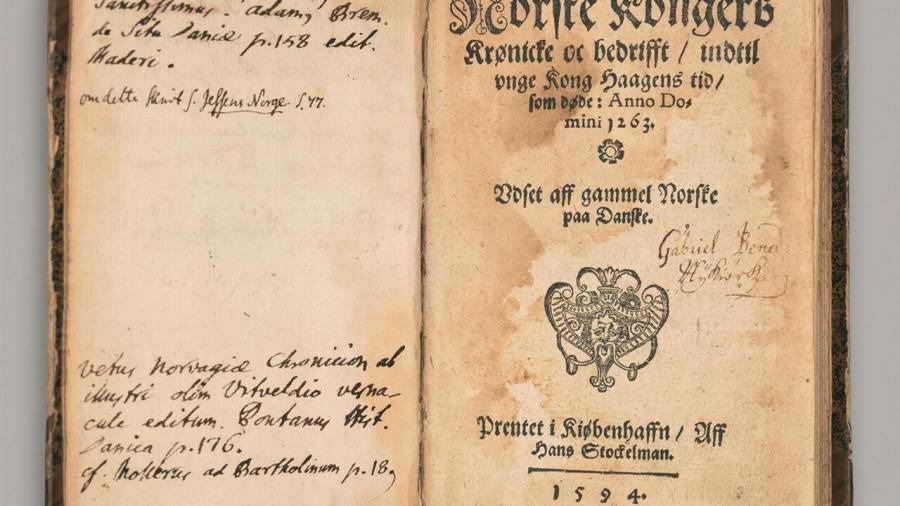 Sanctissimus. adamq Brem.
de Situ Daniæ p. 158 edit.
Maderi.
om dette skrift s. Jessens Norge. S. 77.
vetus Norvagiæ Chronicion ab
illustri olim Vitveldio verna-
cule editum. Pontanus Hist.
Danica p. 176.
cf. Mollerus ad Bartholinum p. 18
Norske Kongers
Krønicke oc bedrifft / indtil
vnge Kong Haagens tid /
som døde: Anno Do-
mini 1263.
Vdset aff gammel Norske
paa Danske.
Gabriel
Prentet i Kiøbenhaffn / Aff
Hans Stockelman.
1594.